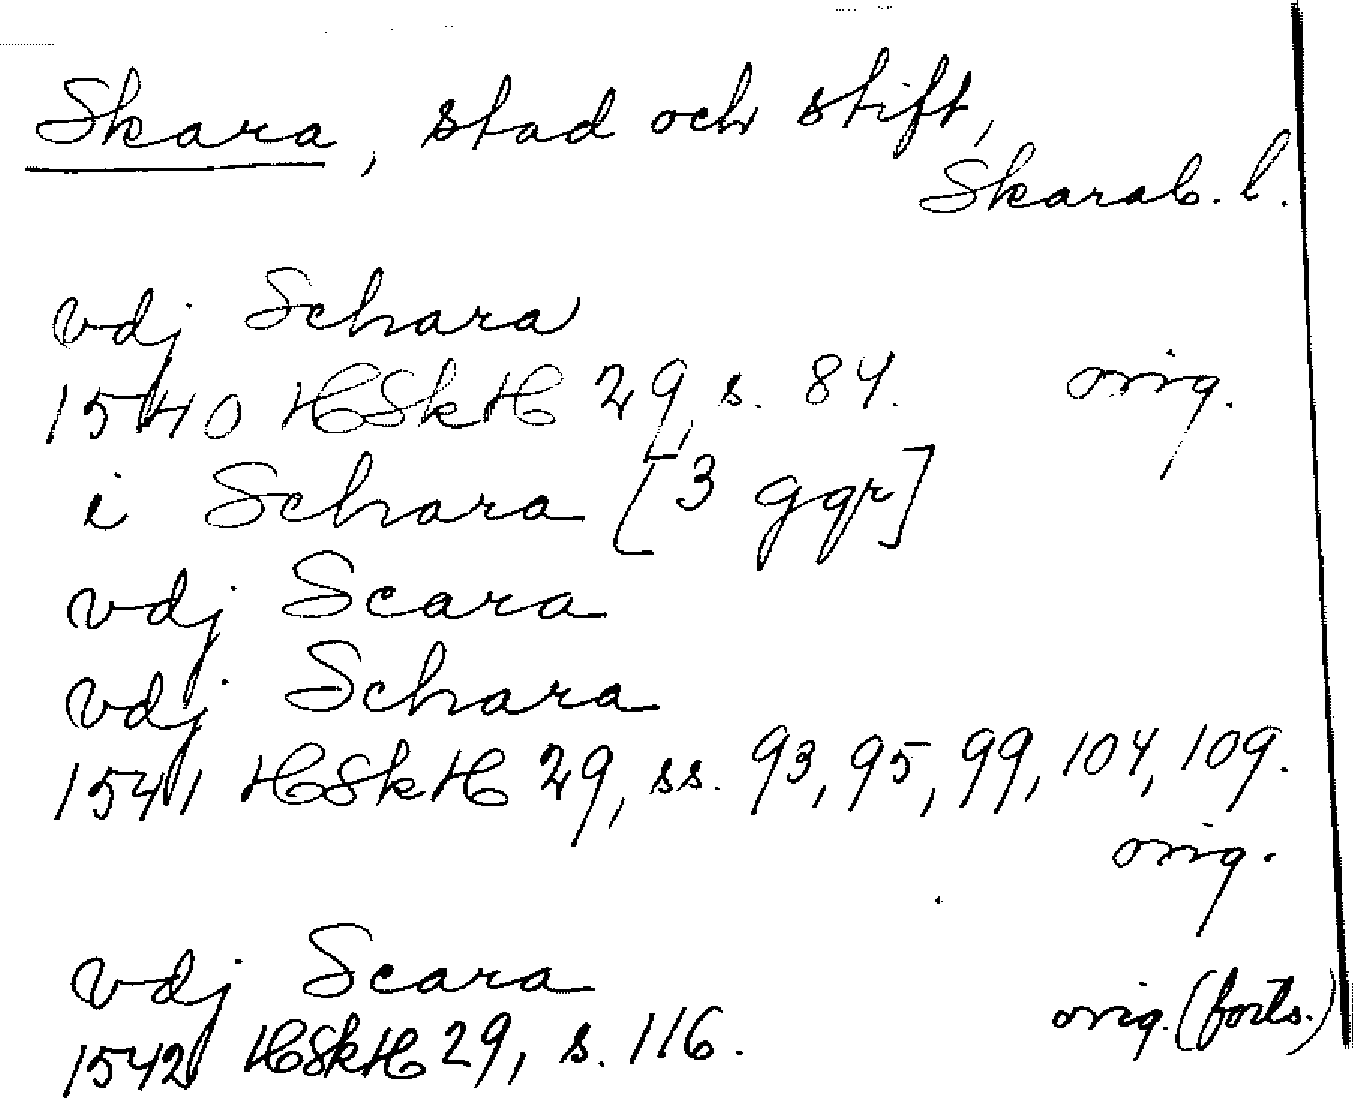 Skara, stad och stift,
Skarab. l.
vdj Schara
1540 HSkH 29, s. 84. orig.
i Schara [3 ggr]
vdj Scara
vdj Schara
1541 HSkH 29, ss. 93, 95, 99, 104, 109.
orig.
vdj Scara
1542 HSkH 29, s. 116. orig. (forts.)